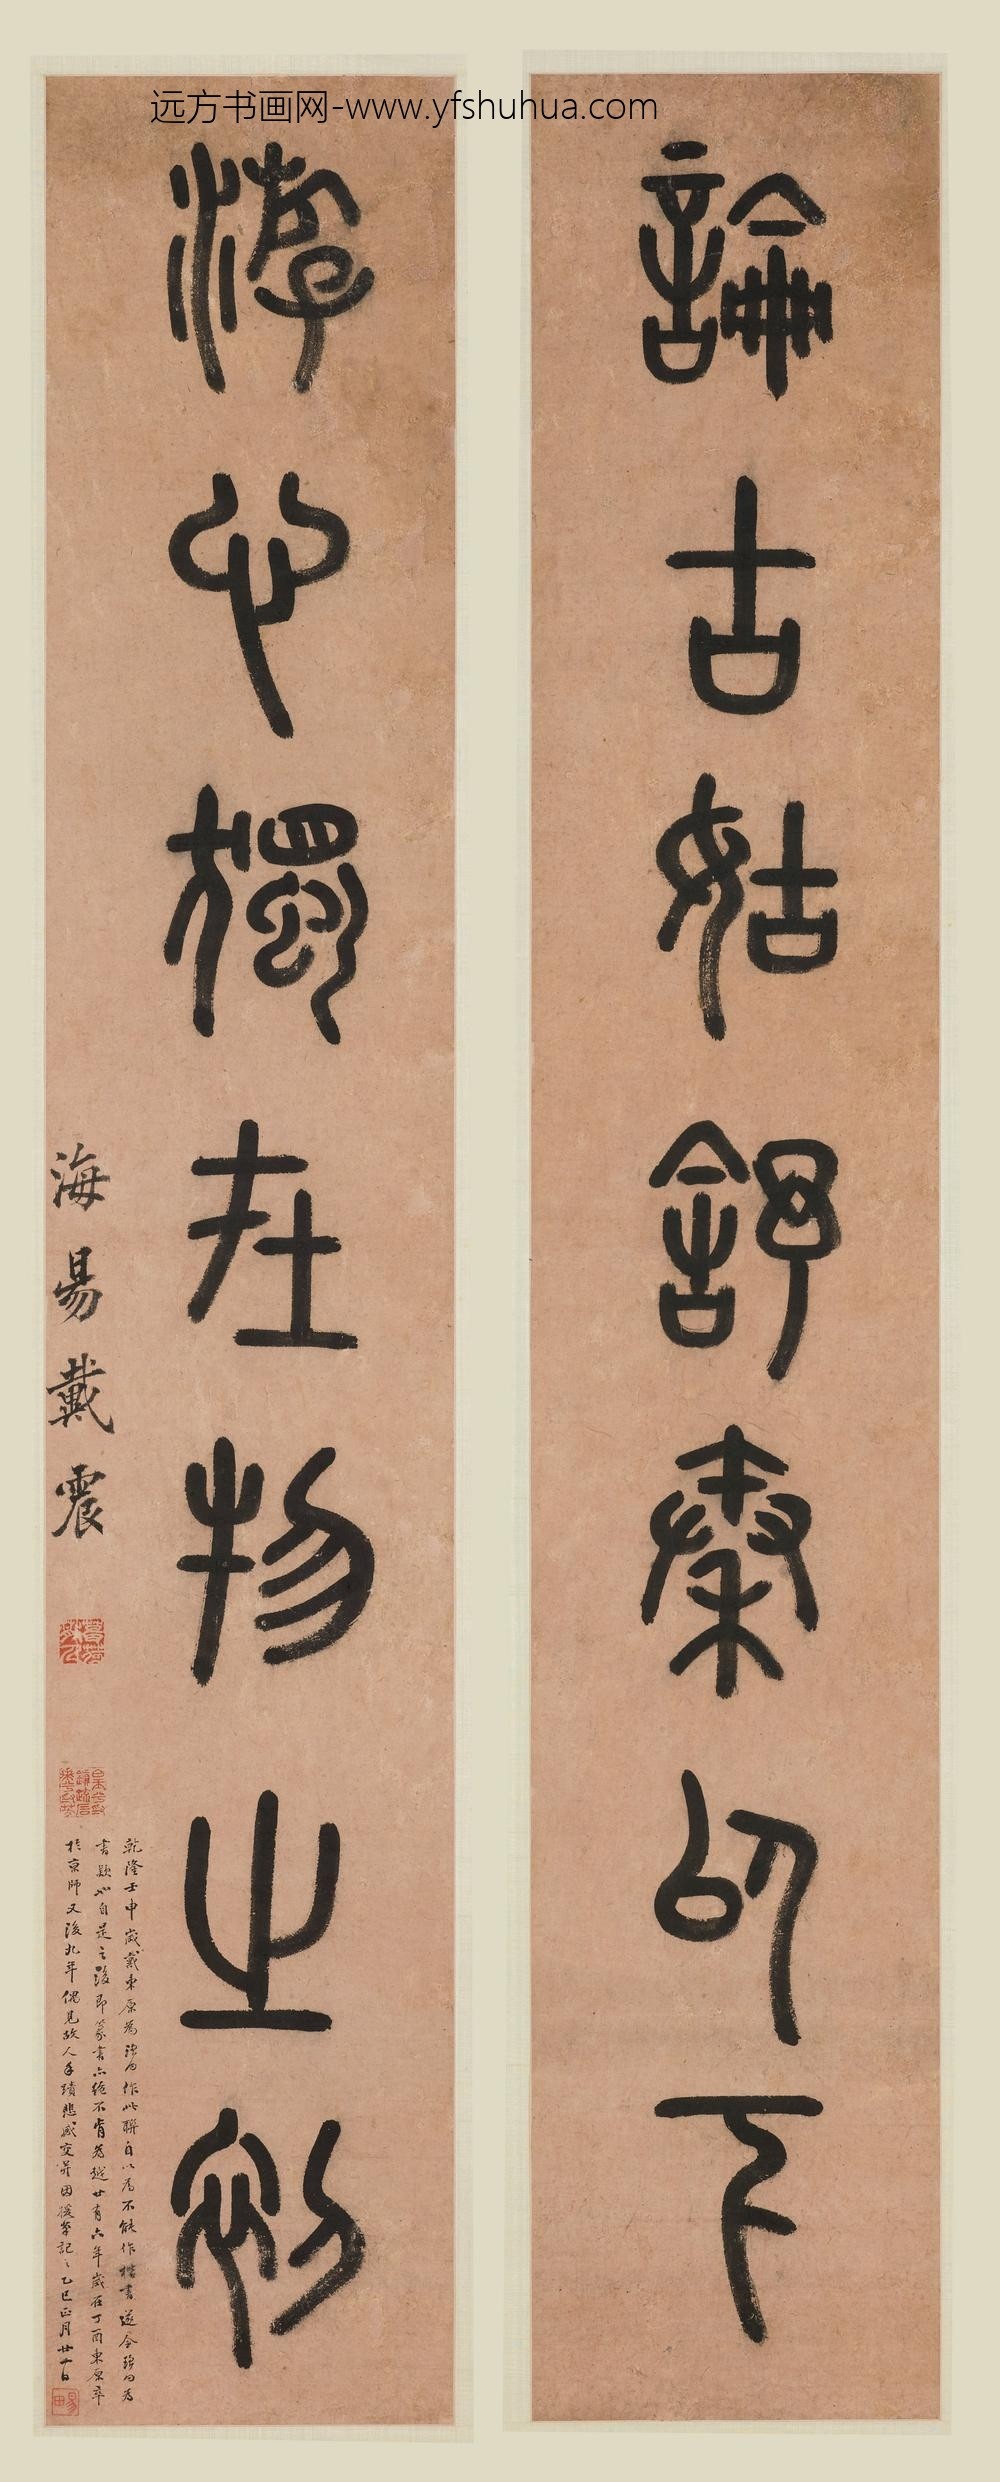 远方书画网-www.yfshuhua.com
論古姑舒秦㠯下
游心獨在物之初
海昜戴震
乾隆壬申歲戴東原為瑤田作此聯自以為不能作楷書遂令瑤田為
書款也自是之後即篆書亦絕不肯為越廿有六年歲在丁酉東原卒
於京師又後九年偶見故人手蹟悲感交并因援筆記之乙巳正月廿一日